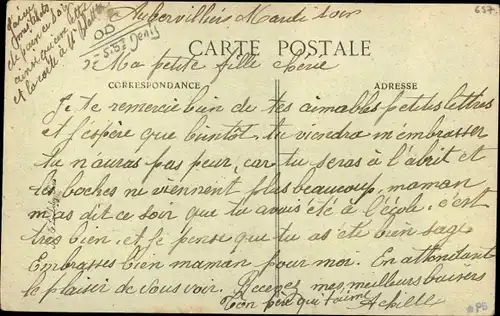 Aubervilliers Mardi soir
657
J'ai reçu
et la carte à
OD
S-St Denis
CARTE POSTALE
Ma petite fille chérie
CORRESPONDANCE
ADRESSE
Je te remercie bien de tes aimables petites lettres
et j'espère que bientot tu viendra m'embrasser
tu n'auras pas peur, car tu seras à l'abrit et
les boches ne viennent plus beaucoup, maman
m'as dit ce soir que tu avais été à l'école, c'est
très bien, et je pense que tu as été bien sage
Embrasses bien maman pour moi. En attendant
le plaisir de vous voir. Recevez mes meilleurs baisers
Ton père qui t'aime
Achille